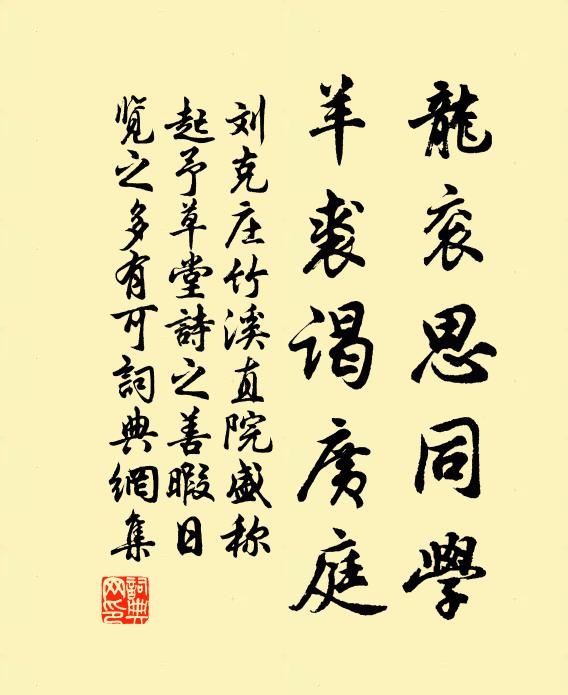 龍衮思同學
羊裘謁廣庭
刘克庄竹溪直院盛称
起予草堂詩之善暇日
览之多有可詞典網集
詞典网印